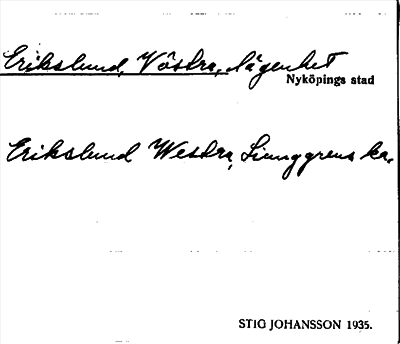 Erikslund, Västra, lägenhet
Nyköpings stad
Erikslund Westra, Liunggrens ka.
STIG JOHANSSON 1935.